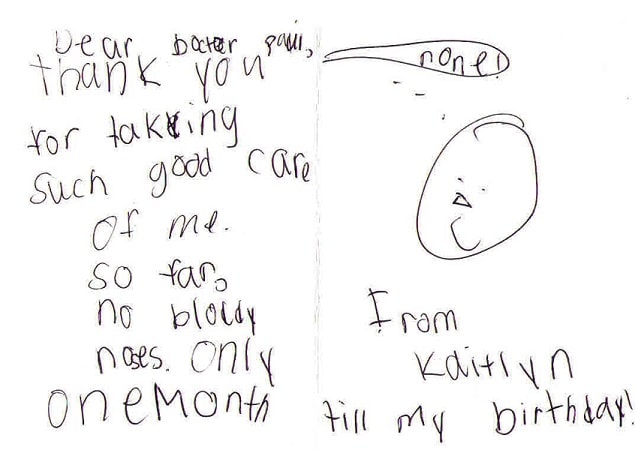 Dear Docter Paul,
thank you
for takeing
such good care
of me.
so far,
no bloody
noses. Only
one Month till my birthday!
none!
From
Kaitlyn